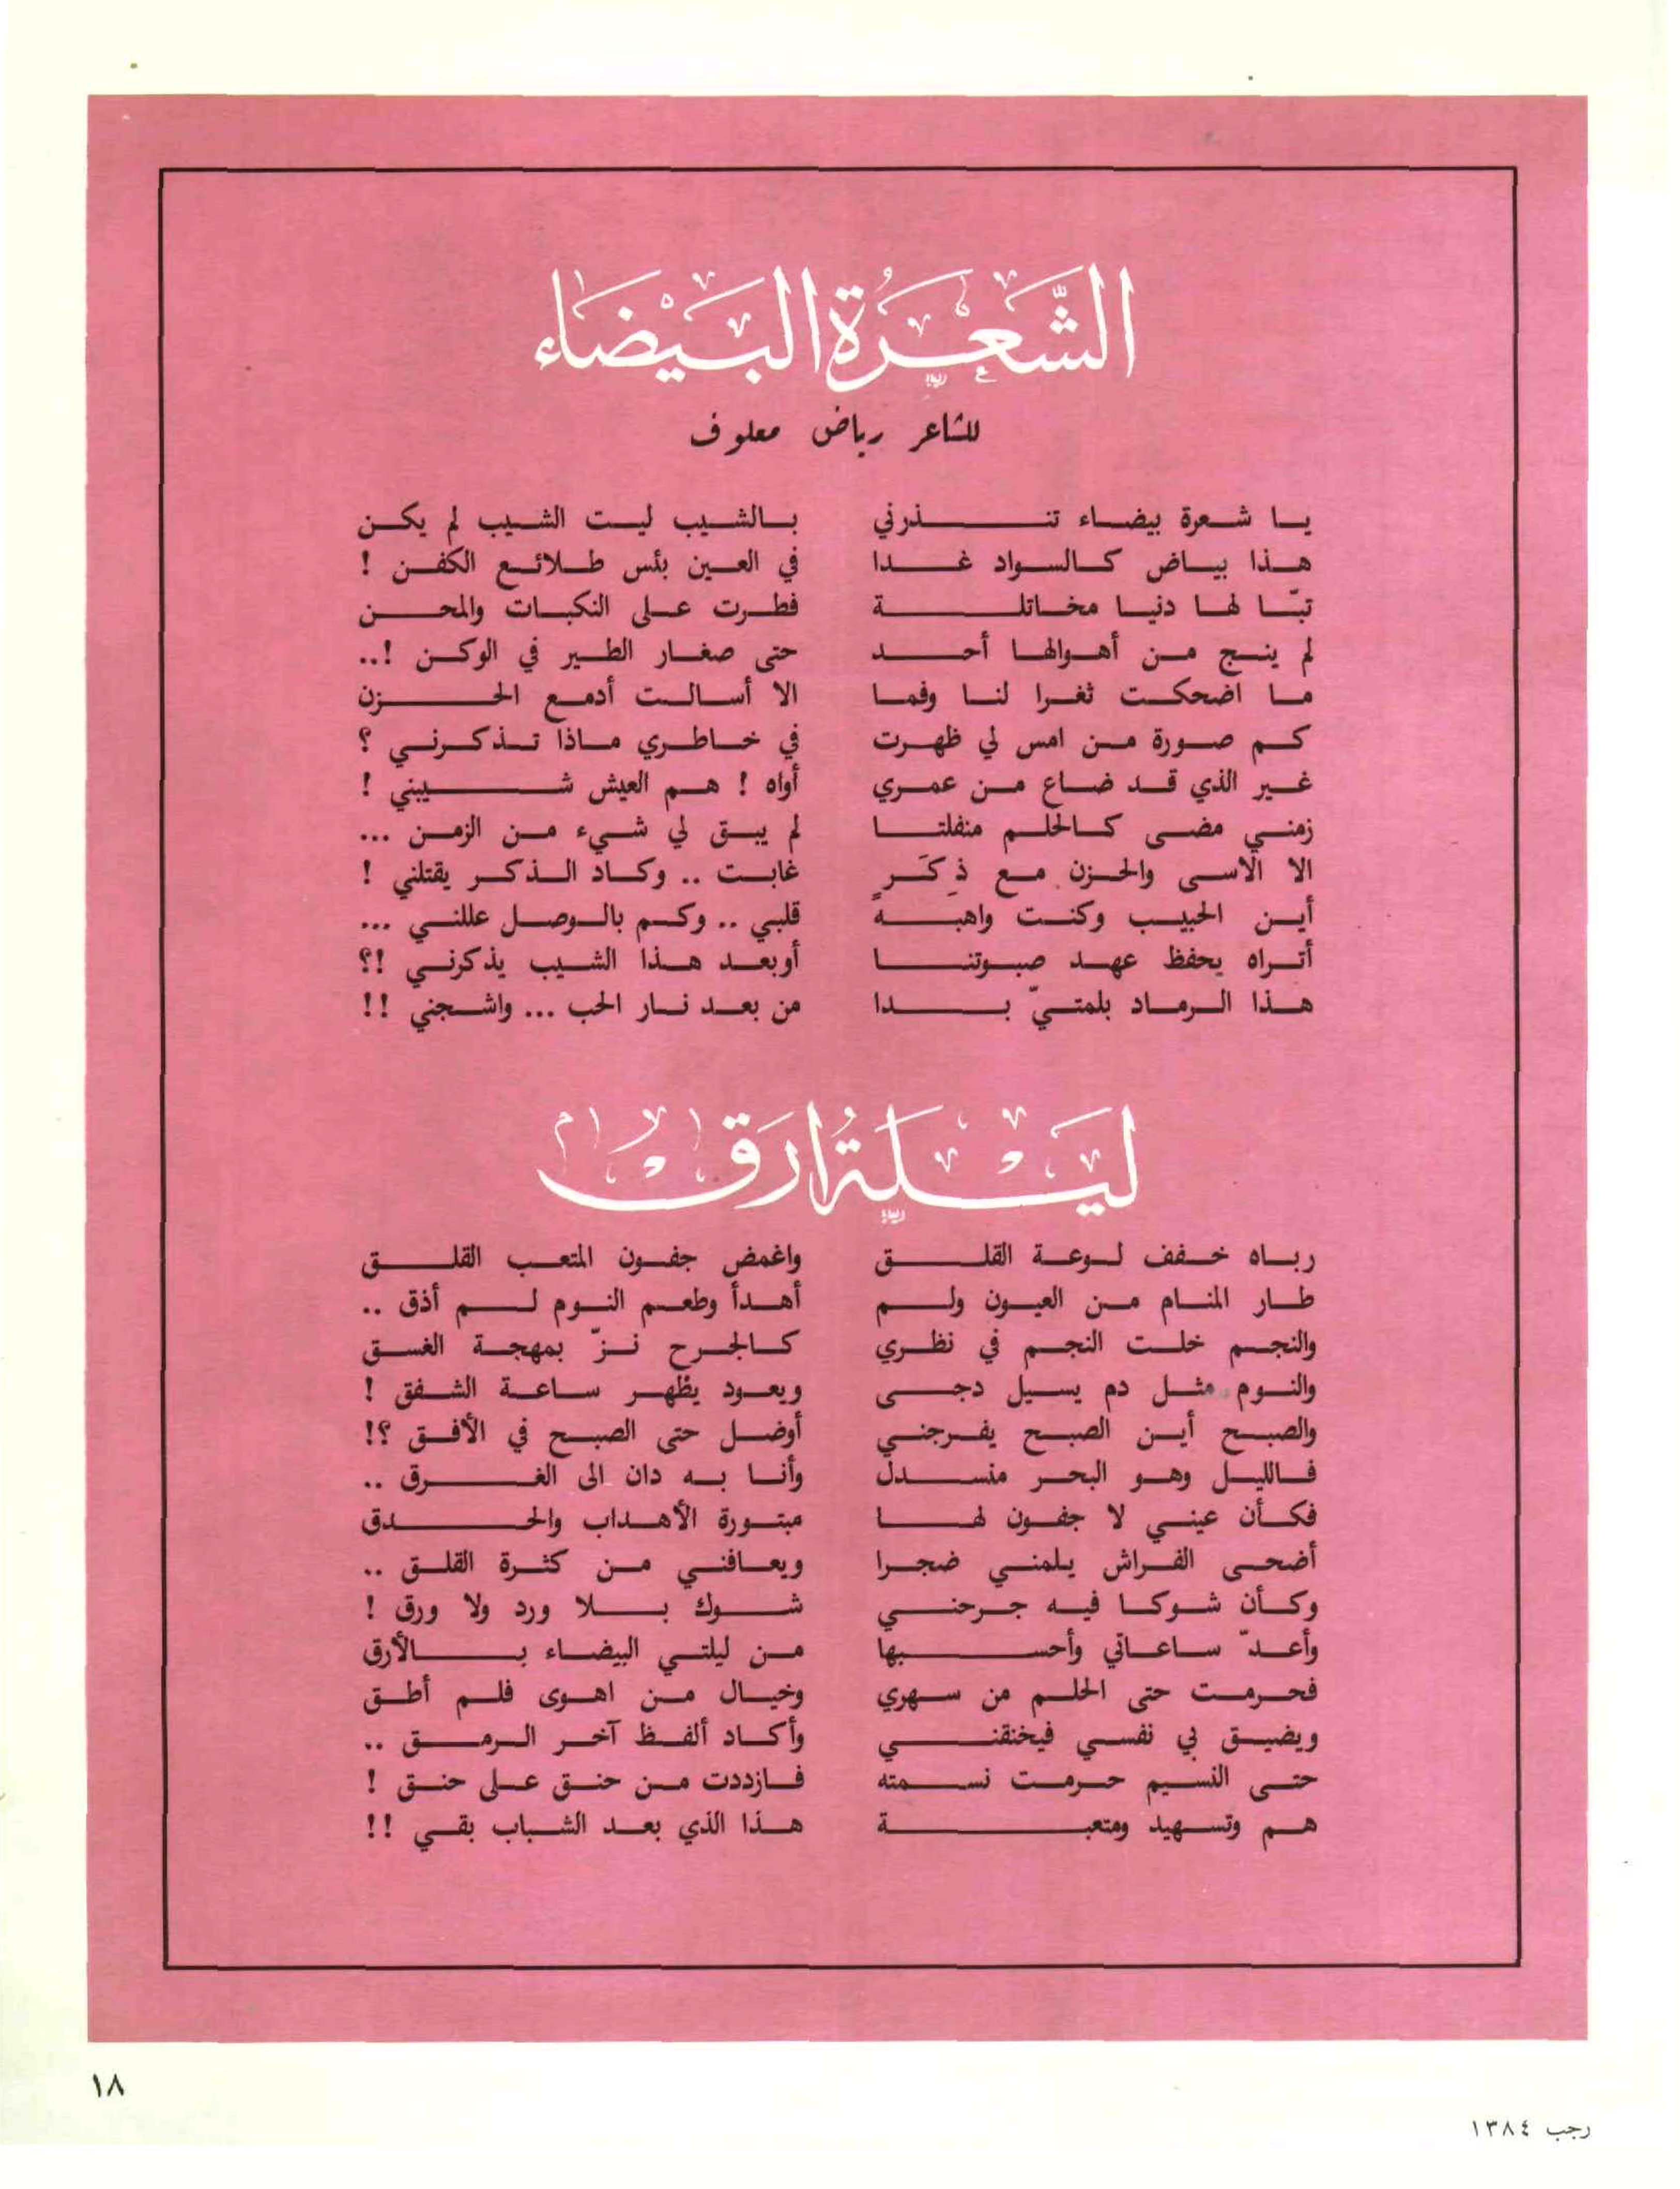 الشَّعْرَةُ البَيْضَاء
للشاعر رياض معلوف
يا شعرة بيضاء تنذرني بالشيب ليت الشيب لم يكن
هذا بياض كالسواد غدا في العين بئس طلائع الكفن !
تبّا لها دنيا مخاتلة فطرت على النكبات والمحن
لم ينج من أهوالها أحد حتى صغار الطير في الوكن !..
ما اضحكت ثغرا لنا وفما الا أسالت أدمع الحزن
كم صورة من امس لي ظهرت في خاطري ماذا تذكرني ؟
غير الذي قد ضاع من عمري أواه ! هم العيش شيبني !
زمني مضى كالحلم منفلتا لم يبق لي شيء من الزمن ...
الا الاسى والحزن مع ذِكَرٍ غابت .. وكاد الذكر يقتلني !
أين الحبيب وكنت واهبه قلبي .. وكم بالوصل عللني ...
أتراه يحفظ عهد صبوتنا أوبعد هذا الشيب يذكرني !؟
هذا الرماد بلمتيّ بدا من بعد نار الحب ... واشجني !!
لَيْلَةُ ارَق
رباه خفف لوعة القلق واغمض جفون المتعب القلق
طار المنام من العيون ولم أهدأ وطعم النوم لم أذق ..
والنجم خلت النجم في نظري كالجرح نزّ بمهجة الغسق
والنوم مثل دم يسيل دجى ويعود يظهر ساعة الشفق !
والصبح أين الصبح يفرجني أوضل حتى الصبح في الأفق ؟!
فالليل وهو البحر منسدل وأنا به دان الى الغرق ..
فكأن عيني لا جفون لها مبتورة الأهداب والحدق
أضحى الفراش يلمني ضجرا ويعافني من كثرة القلق ..
وكأن شوكا فيه جرحني شوك بلا ورد ولا ورق !
وأعدّ ساعاتي وأحسبها من ليلتي البيضاء بالأرق
فحرمت حتى الحلم من سهري وخيال من اهوى فلم أطق
ويضيق بي نفسي فيخنقني وأكاد ألفظ آخر الرمق ..
حتى النسيم حرمت نسمته فازددت من حنق على حنق !
هم وتسهيد ومتعبة هذا الذي بعد الشباب بقي !!
١٨
رجب ١٣٨٤